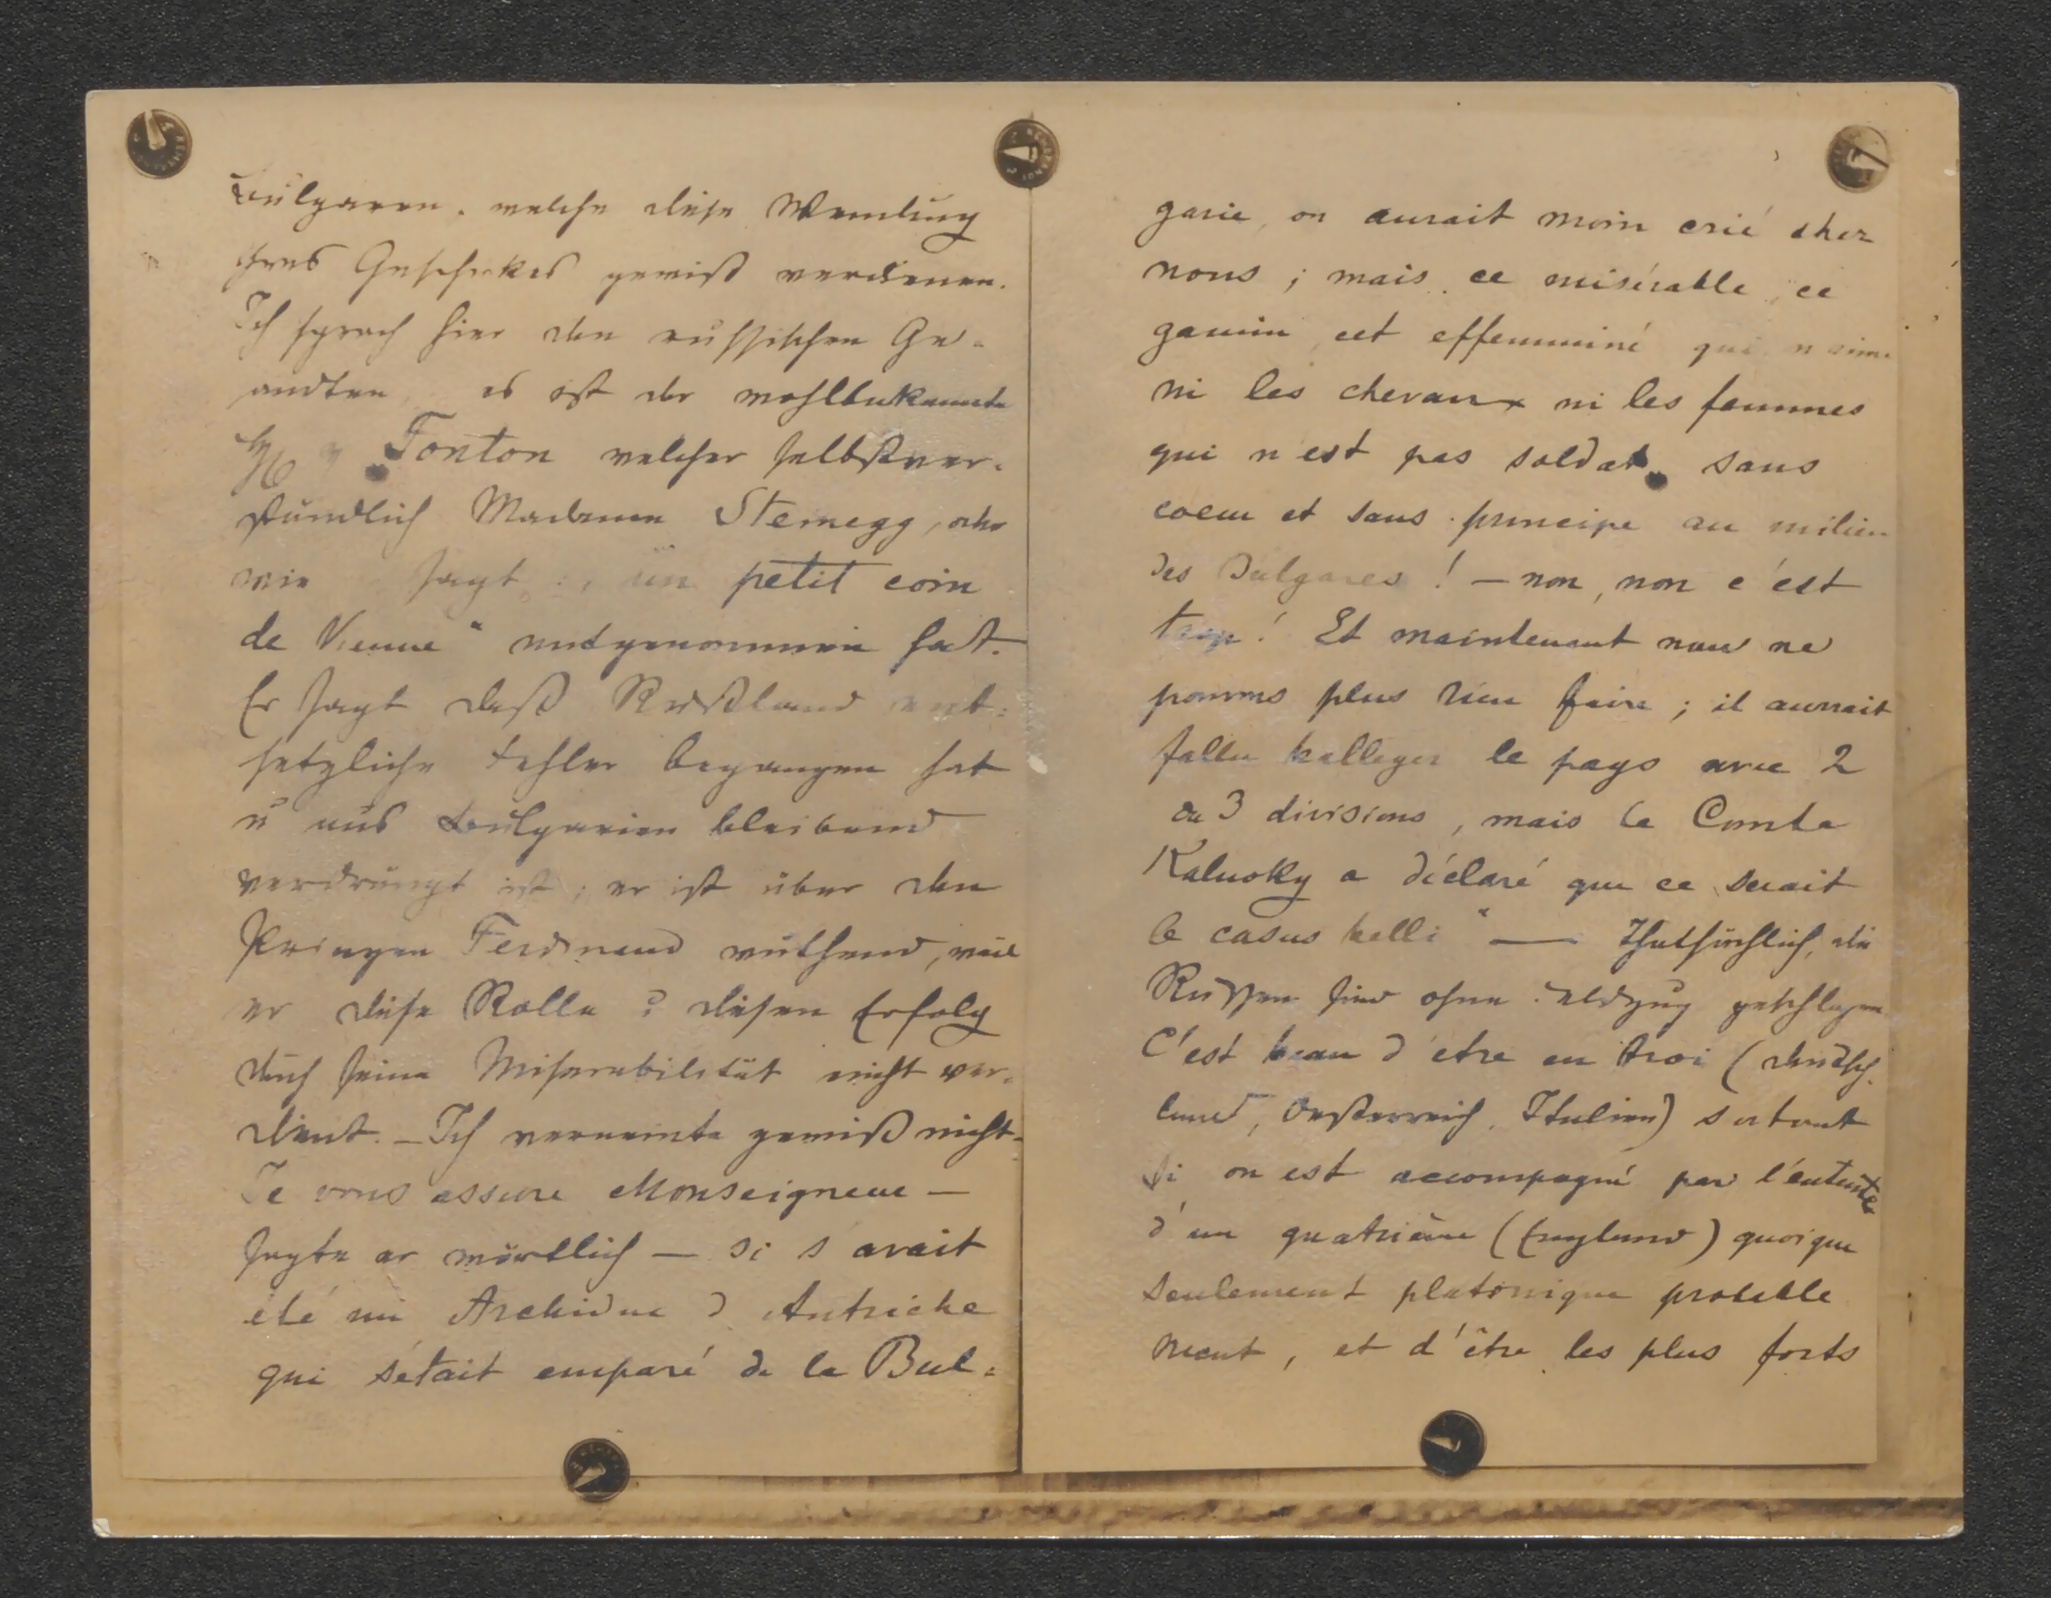 Bulgaren, welche diese Wendung
ihres Geschickes gewiß verdienen.
Ich sprach hier den russischen Ge-
sandten, es ist der wohlbekannte
Fonton welcher selbstver-
ständlich Madame Sternegg, oder
wie sagt: „un petit coin
de Vienne“ mitgenommen hat.
Er sagt daß Rußland ent-
setzliche Fehler begangen hat
u aus Bulgarien bleibend
verdrängt ist; er ist über den
Prinzen Ferdinand wüthend, weil
er diese Rolle & diesen Erfolg
durch seine Miserabilität nicht ver-
dient. – Ich verneinte gewiß nicht.
Je vous assure Monseigneur –
sagte er wörtlich – si s'avait
été un Archiduc d'Autriche
qui s'etait emparé de la Bul-
garie, on aurait moin crié chez
nous; mais ce misérable, ce
gamin, cet effemminé qui n'aime
ni les chevaux ni les femmes
qui n'est pas soldat, sans
coeur et sans principe au milieu
des Bulgares! – non, non c'est
trop! Et maintenant nous ne
pouvons plus rien faire; il aurrait
fallu le pays avec 2
ou 3 divisions, mais le Comte
Kalnoky a déclaré que ce serait
le casus belli“ — Thatsächlich, die
Russen sind ohne Feldzug geschlagen.
C'est beau d'etre en troi (Deutsch-
land, Oesterreich, Italien) surtout
si on est accompagné par l'entente
d'un quatrième (England) quoique
seulement platonique probable
ment, et d'être les plus forts